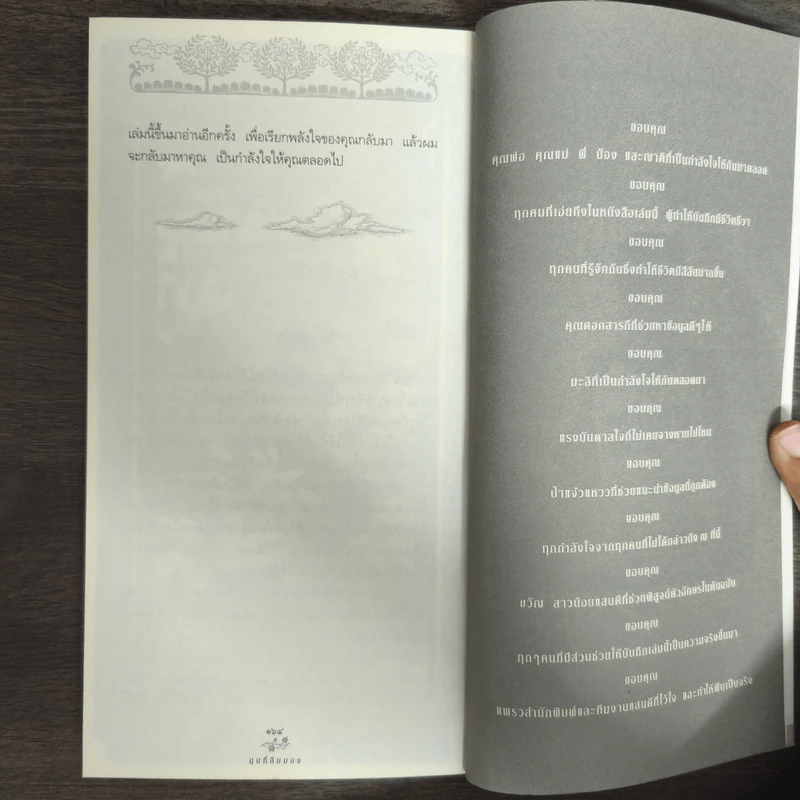 เล่มนี้ขึ้นมาอ่านอีกครั้ง เพื่อเรียกพลังใจของคุณกลับมา แล้วผม
จะกลับมาหาคุณ เป็นกำลังใจให้คุณตลอดไป
๑๖๔
มุมที่ลืมมอง
ขอบคุณ
คุณพ่อ คุณแม่ พี่ น้อง และญาติที่เป็นกำลังใจให้กันมาตลอด
ขอบคุณ
ทุกคนที่เอ่ยถึงในหนังสือเล่มนี้ ผู้ทำให้บันทึกมีชีวิตชีวา
ขอบคุณ
ทุกคนที่รู้จักกันซึ่งทำให้ชีวิตมีสีสันมากขึ้น
ขอบคุณ
คุณดอกสารภีที่ช่วยหาข้อมูลดีๆให้
ขอบคุณ
มะลิที่เป็นกำลังใจให้กันตลอดมา
ขอบคุณ
แรงบันดาลใจที่ไม่เคยจางหายไปไหน
ขอบคุณ
ป้าแจ๋วแหววที่ช่วยแนะนำข้อมูลที่ถูกต้อง
ขอบคุณ
ทุกกำลังใจจากทุกคนที่ไม่ได้กล่าวถึง ณ ที่นี้
ขอบคุณ
ขวัญ สาวน้อยแสนดีที่ช่วยพิสูจน์ตัวอักษรในต้นฉบับ
ขอบคุณ
ทุกๆคนที่มีส่วนช่วยให้บันทึกเล่มนี้เป็นความจริงขึ้นมา
ขอบคุณ
แพรวสำนักพิมพ์และทีมงานแสนดีที่ไว้ใจ และทำให้ฝันเป็นจริง